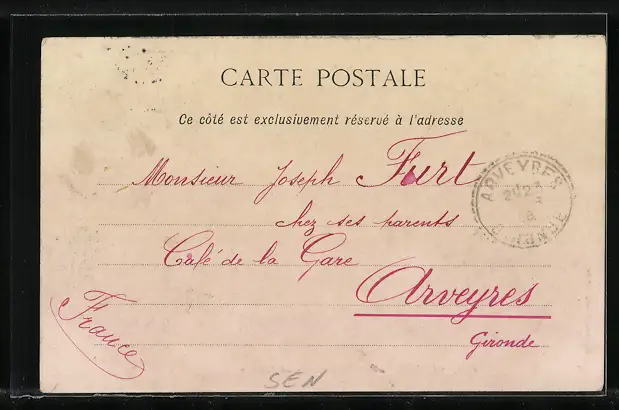 CARTE POSTALE
Ce côté est exclusivement réservé à l'adresse
Monsieur Joseph Furt
chez ses parents
Café de la Gare
Arveyres
Gironde
France
ARVEYRES
GIRONDE
SEN